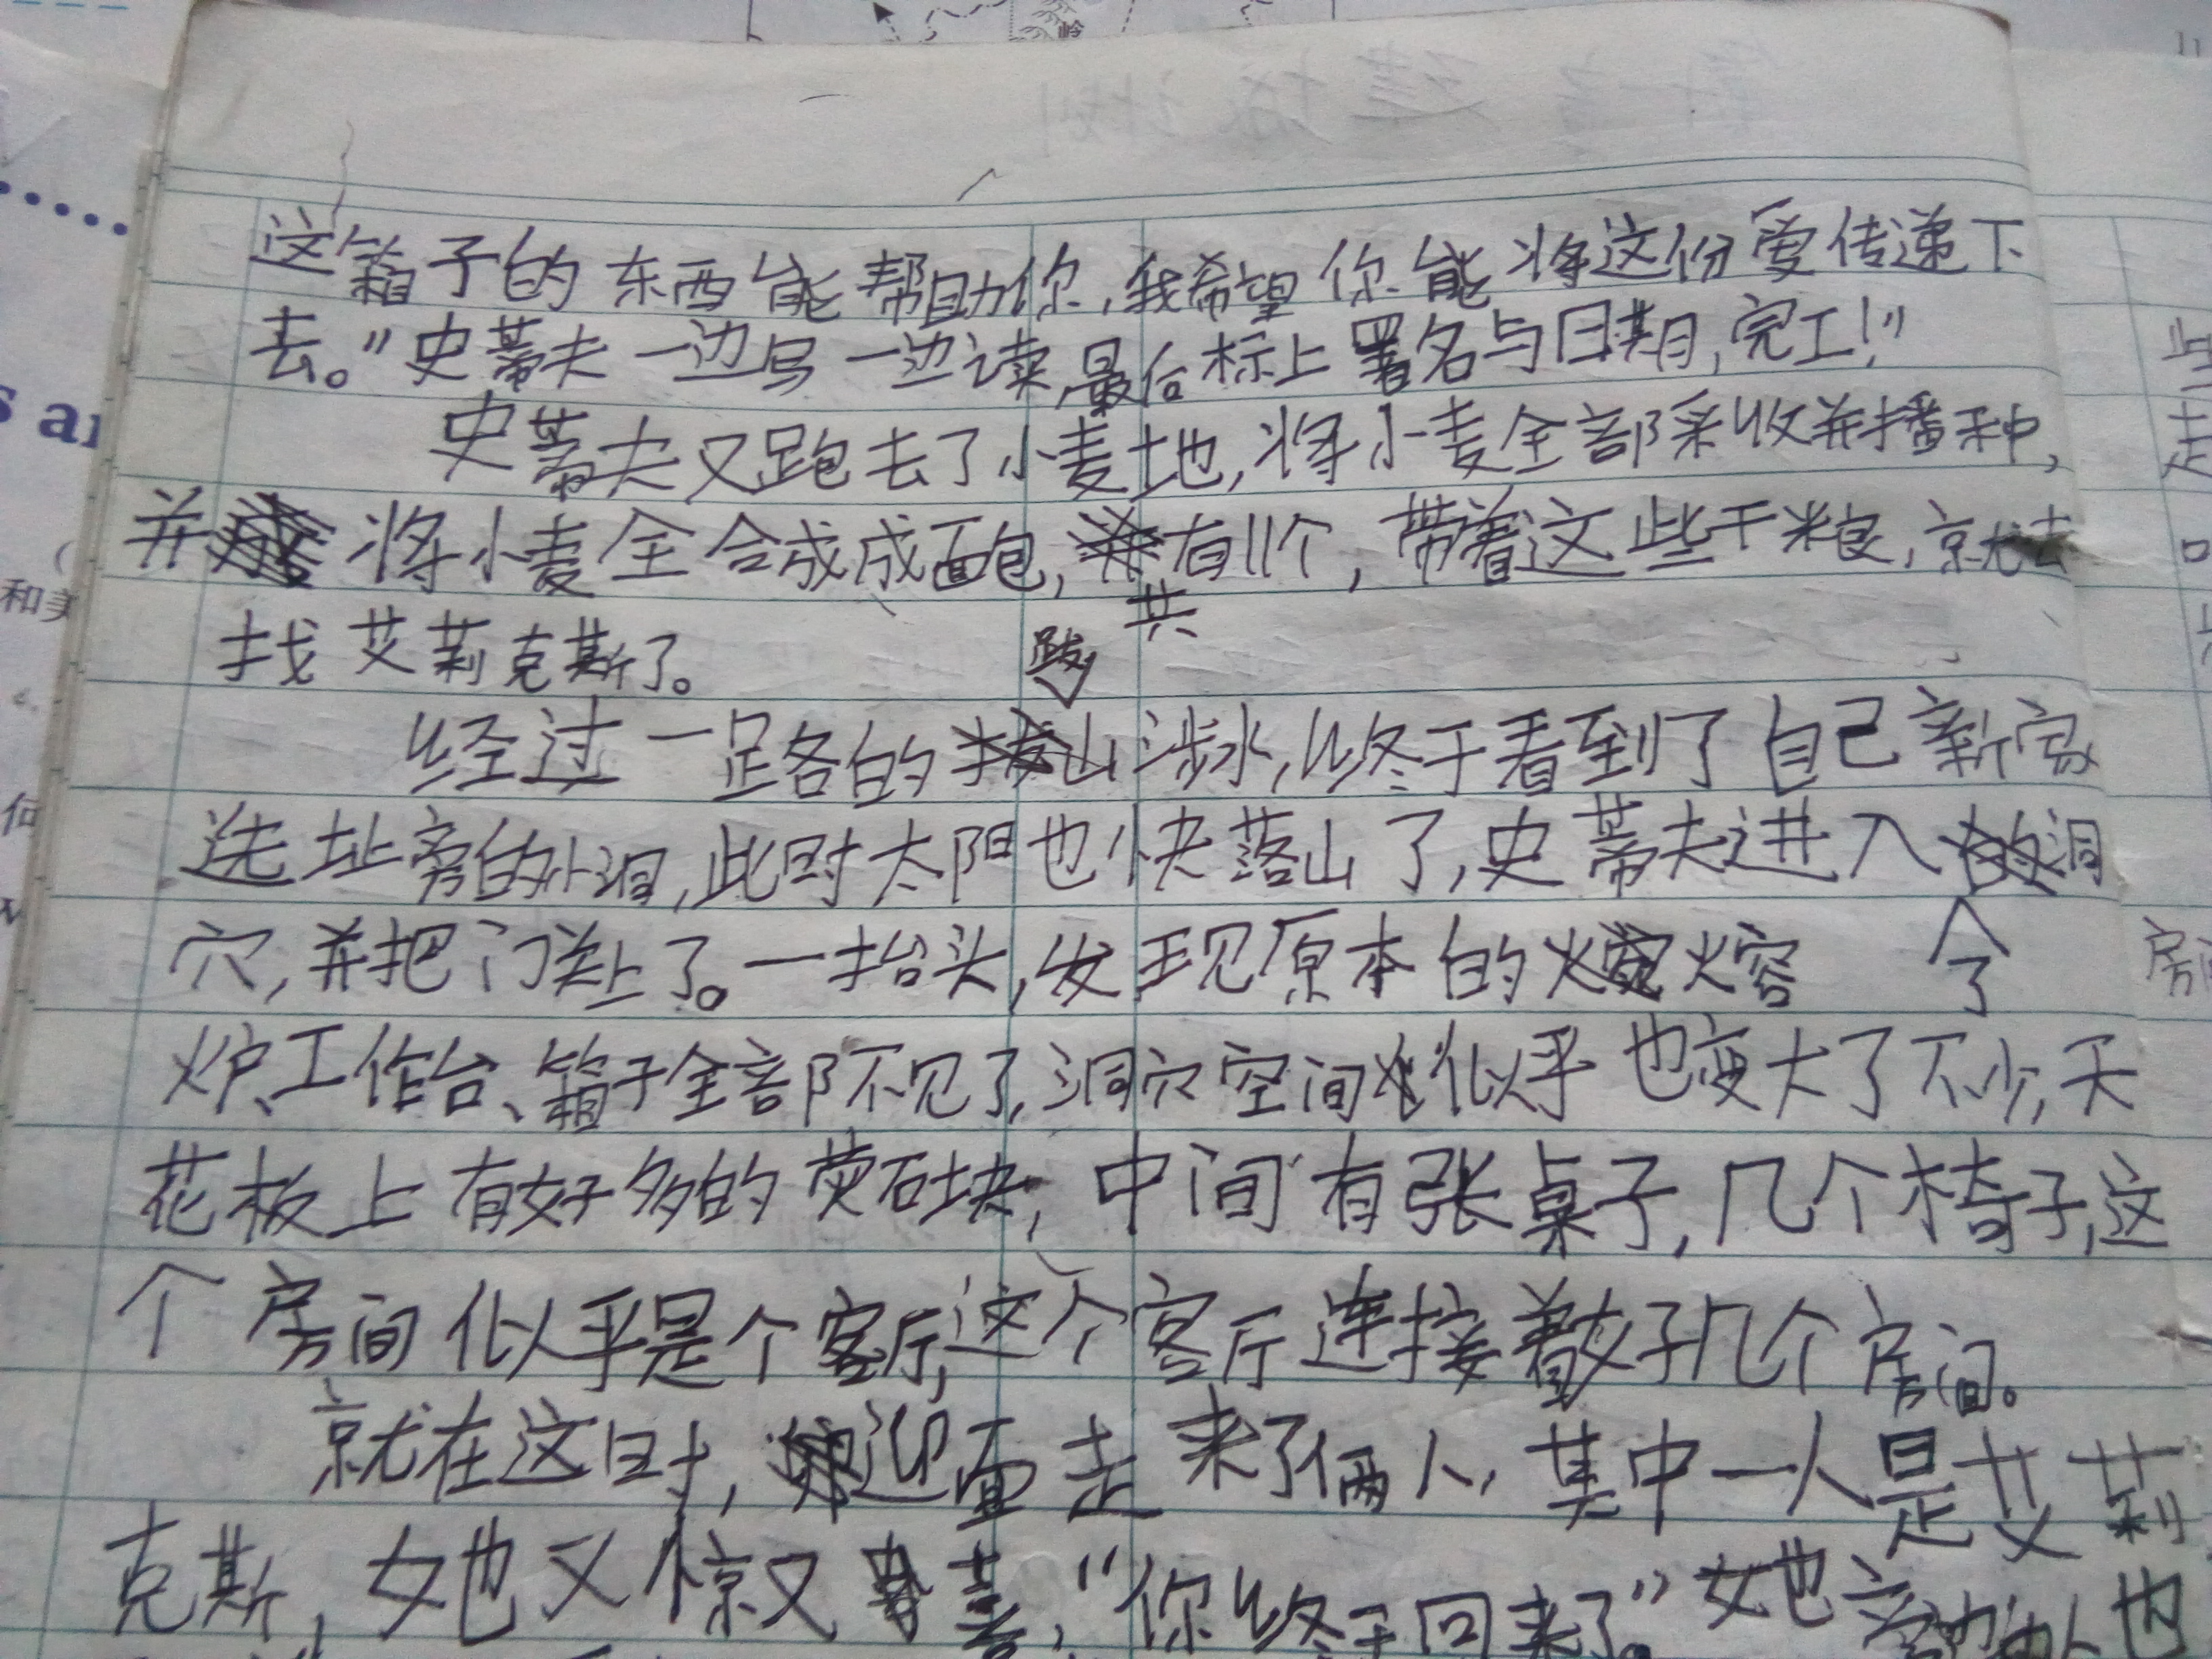 这箱子的东西能帮助你,我希望你能将这份爱传递下
去。”史蒂夫一边写一边读,最后标上署名与日期,完工!”
史蒂夫又跑去了小麦地,将小麦全部采收并播种,
并将小麦全合成成面包,共有11个,带着这些干粮,就去
找艾莉克斯了。
经过一路的跋山涉水,终于看到了自己新家
选址旁的小洞,此时太阳也快落山了,史蒂夫进入了洞
穴,并把门关上了。一抬头,发现原本的熔
炉、工作台、箱子全部不见了,洞穴空间似乎也变大了不少,天
花板上有好多的荧石块,中间有张桌子,几个椅子,这
个房间似乎是个客厅,这个客厅连接着好几个房间。
就在这时,迎面走来了俩人,其中一人是艾莉
克斯,她又惊又喜,“你终于回来了。”她
和美
s ar
岭
11
房